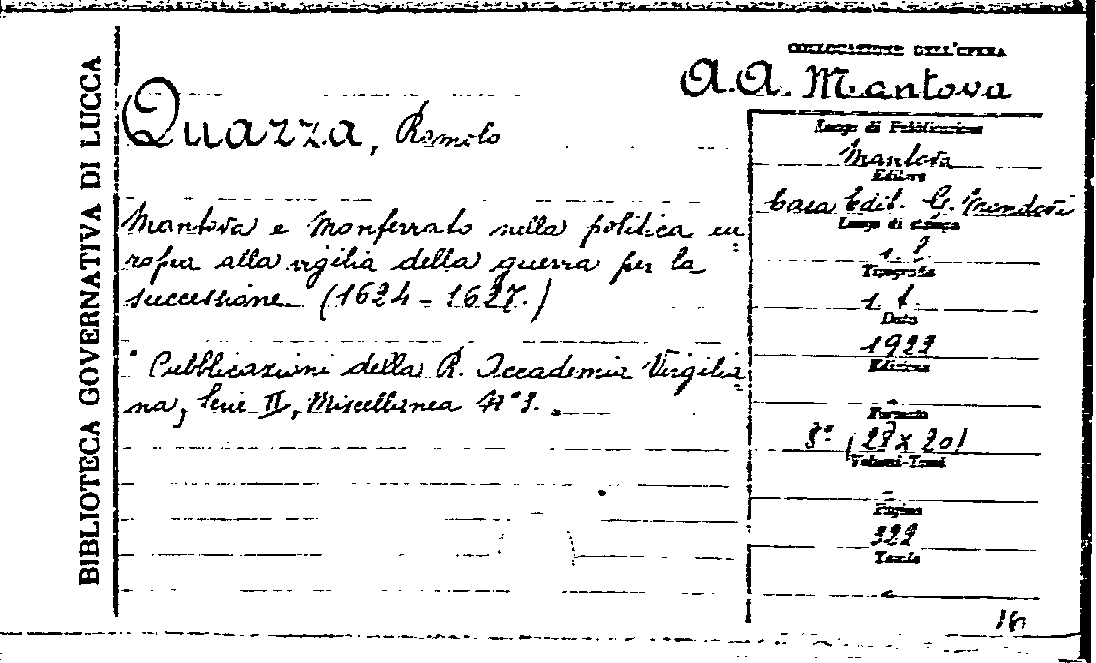 BIBLIOTECA GOVERNATIVA DI LUCCA
COLLOCAZIONE DELL'OPERA
A.A. Mantova
Quazza, Romolo
Mantova e Monferrato nella politica eu=
ropea alla vigilia della guerra per la
successione (1624-1627.)
" Pubblicazioni della R. Accademia Virgilia=
na, Serie II, Miscellanea N°
Luogo di Pubblicazione
Mantova
Editore
Casa Edit. G. Mondovi
Luogo di stampa
Tipografia
Data
1922
Edizione
-
Formato
8° (28 x 20)
Volumi-Tomi
-
Pagine
322
Tavole
-